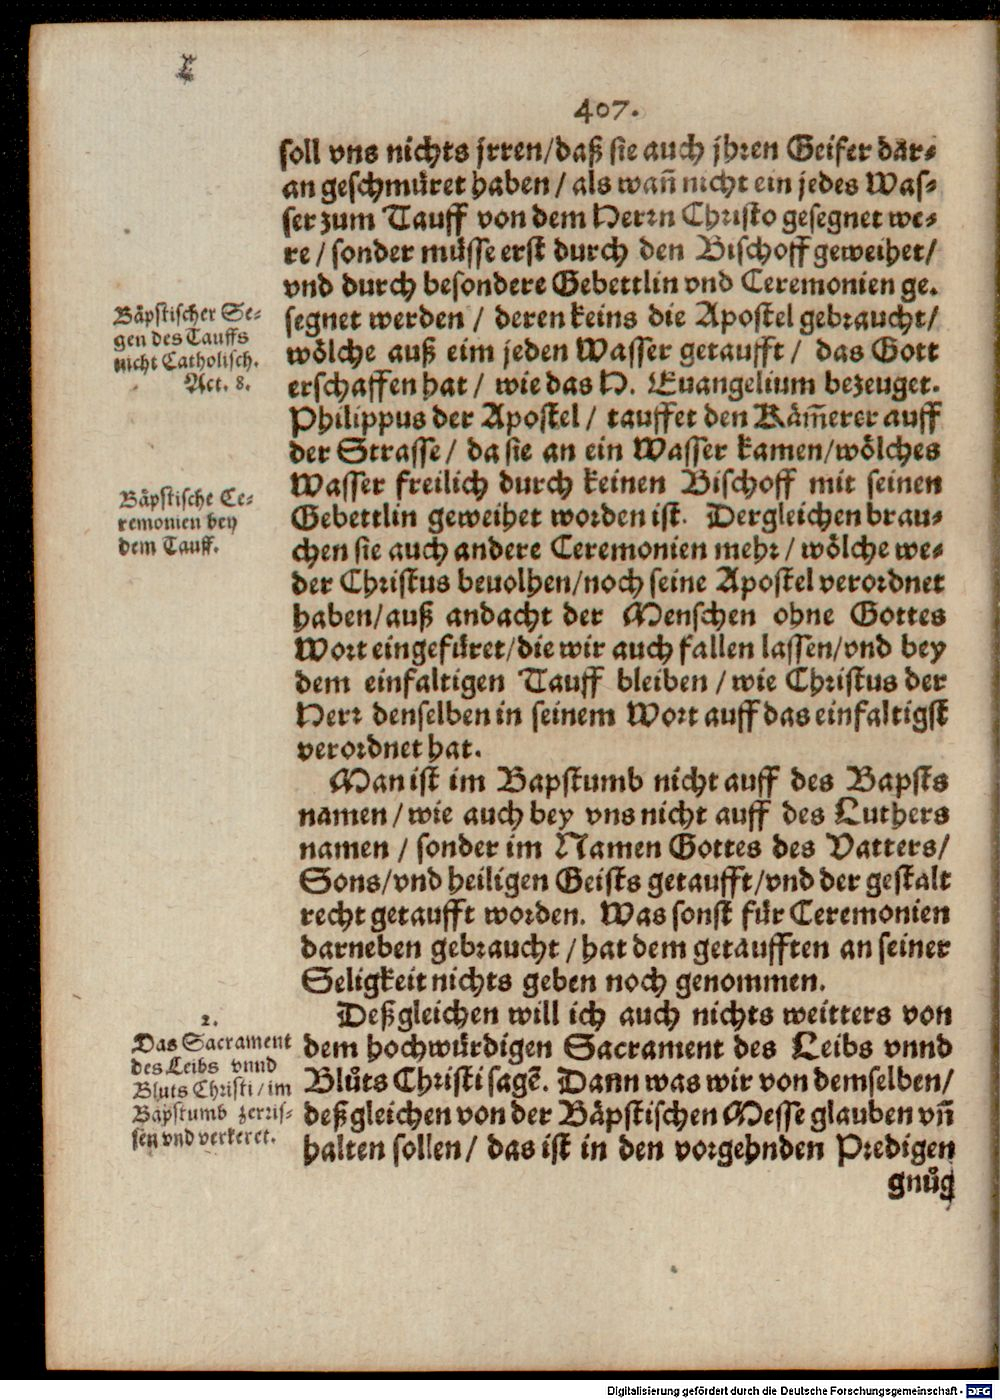 407.
soll vns nichts jrren/daß sie auch jhren Geifer dar⸗
an geschmüret haben / als wañ nicht ein jedes Was⸗
ser zum Tauff von dem Herrn Christo gesegnet we⸗
re / sonder müsse erst durch den Bischoff geweihet/
vnd durch besondere Gebettlin vnd Ceremonien ge.
segnet werden / deren keins die Apostel gebraucht/
wölche auß eim jeden Wasser getaufft / das Gott
erschaffen hat / wie das H. Euangelium bezeuget.
Philippus der Apostel / tauffet den Käm̃erer auff
der Strasse / da sie an ein Wasser kamen/wölches
Wasser freilich durch keinen Bischoff mit seinen
Gebettlin geweihet worden ist. Dergleichen brau⸗
chen sie auch andere Ceremonien mehr / wölche we⸗
der Christus beuolhen/noch seine Apostel verordnet
haben/auß andacht der Menschen ohne Gottes
Wort eingefüret/die wir auch fallen lassen/vnd bey
dem einfaltigen Tauff bleiben / wie Christus der
Herr denselben in seinem Wort auff das einfaltigst
verordnet hat.
Man ist im Bapstumb nicht auff des Bapsts
namen / wie auch bey vns nicht auff des Luthers
namen / sonder im Namen Gottes des Vatters/
Sons/vnd heiligen Geists getaufft/vnd der gestalt
recht getaufft worden. Was sonst für Ceremonien
darneben gebraucht / hat dem getaufften an seiner
Seligkeit nichts geben noch genommen.
Deßgleichen will ich auch nichts weitters von
dem hochwürdigen Sacrament des Leibs vnnd
Blůts Christi sagẽ. Dann was wir von demselben/
deßgleichen von der Bäpstischen Messe glauben vñ
halten sollen / das ist in den vorgehnden Predigen
gnůg
Bäpstischer Se⸗
gen des Tauffs
nicht Catholisch.
Act. 8.
Bäpstische Ce⸗
remonien bey
dem Tauff.
2.
Das Sacrament
des Leibs vnnd
Bluts Christi / im
Bapstumb zerris⸗
sen vnd verkeret.
Digitalisierung gefördert durch die Deutsche Forschungsgemeinschaft - DFG